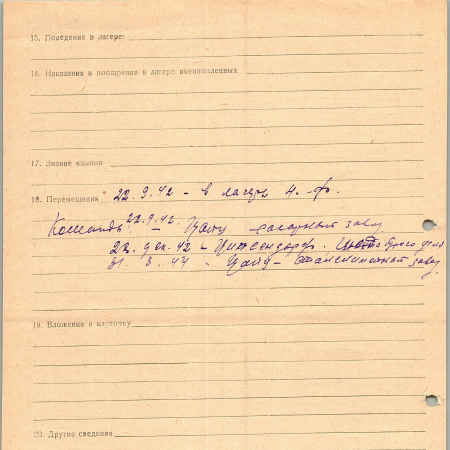 15. Поведение в лагере:
16. Наказания и поощрения в лагере военнопленных
17. Знание языков
18. Перемещения 22.9.42 - в лагерь 4.-ф.
Команды: 22.9.42. - Цайц - сахарный завод
22. дек. 42 - 
31. 3. 44 - Цайц - завод
19. Вложения в карточку
20. Другие сведения